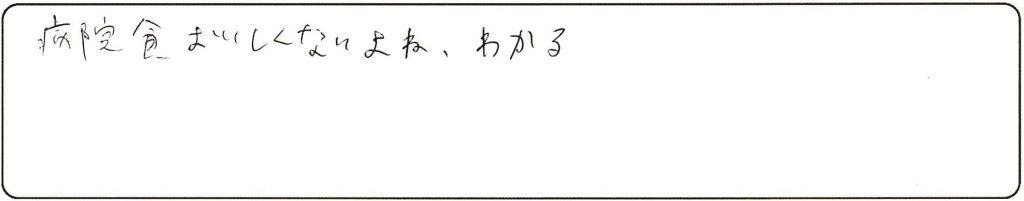 病院食おいしくないよね、わかる